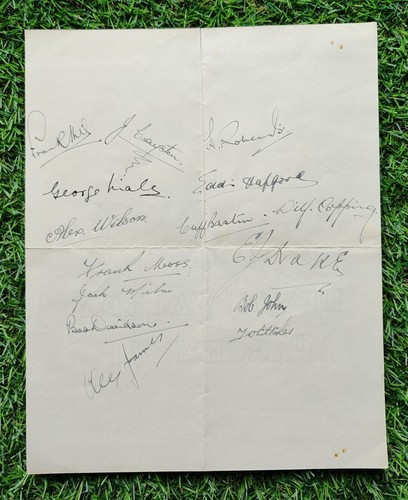 Frank Hill
J. Crayston.
H. Roberts.
George Male.
Eddie Hapgood
Alex Wilson.
Cliff Bastin.
Wilf. Copping.
Frank Moss.
E J Drake
Jack Milne
Bob John
Bob Davidson.
Alex James